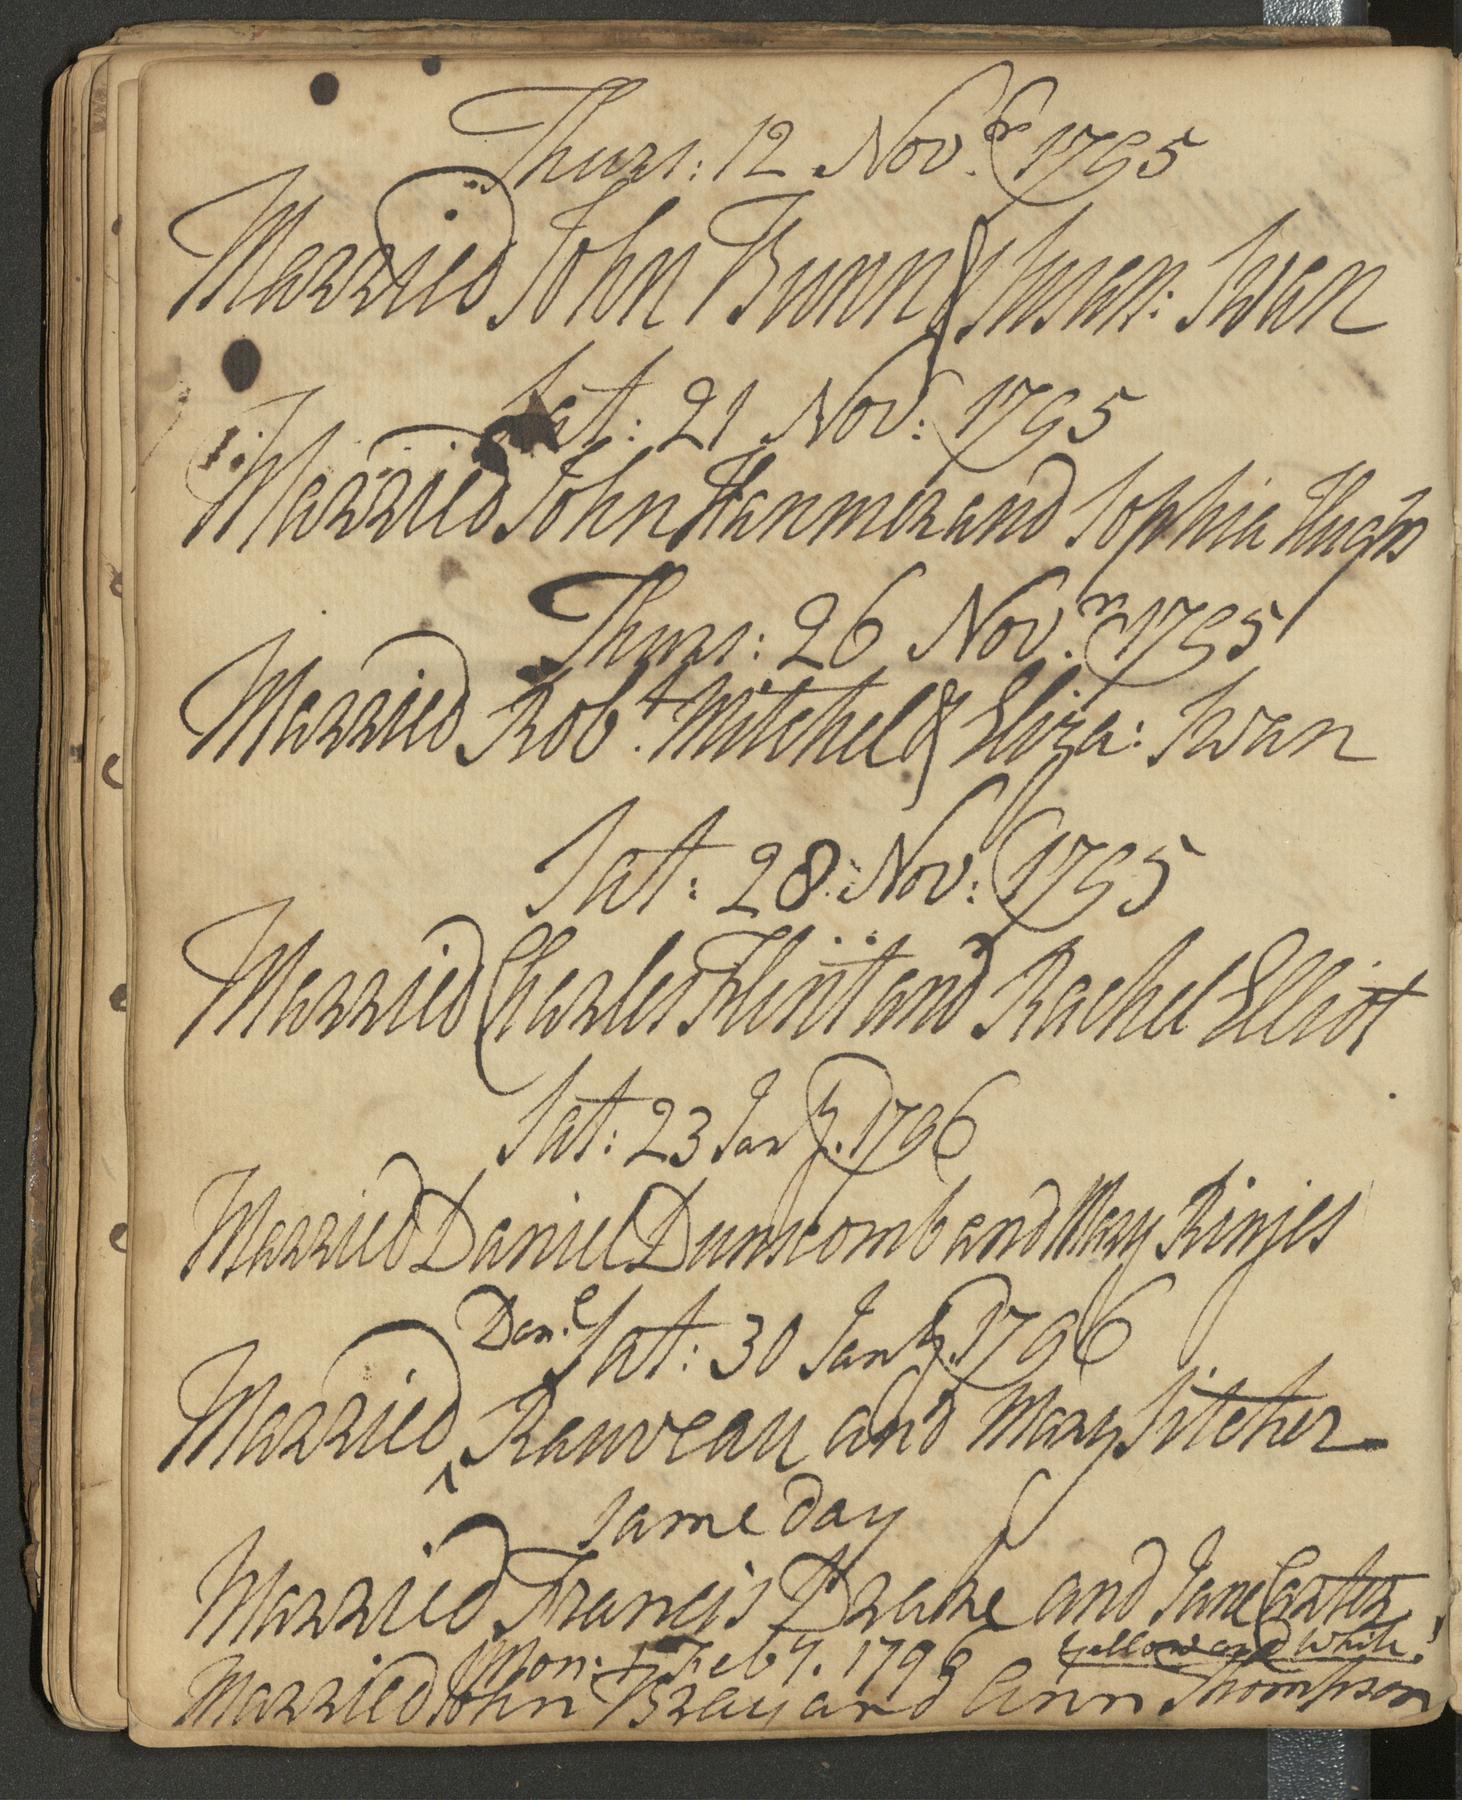 Thurs: 12 Nov.r 1795
Married John Bunn & Susan: Swan
Sat: 21 Nov: 1795
Married John Hanmer and Sophia Hughs
Thurs: 26 Nov.r 1795
Married Robt. Mitchel & Eliza: Swan
Sat: 28 Nov: 1795
Married Charles Flint and Rachel Elliot
Sat: 23 Jany. 1796
Married Daniel Dunscomb and Mary Rinjes
Sat: 30 Jany. 1796
Dan.l
Married ^ Rauveau and Mary Sitcher
Same day
Married Francis Drake and Jane Carter
Yellow and White!
Mon: 1 Feby. 1796
Married John Bray and Ann Thompson